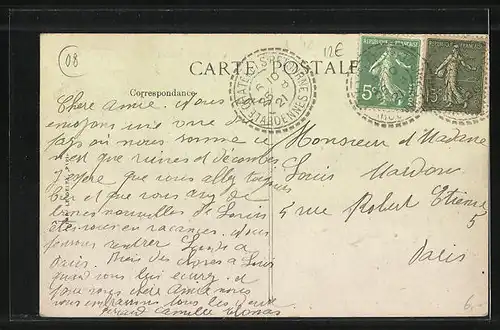 08
12€
CARTE POSTALE
CHATEL-CHEHERY
ARDENNES
21
REPUBLIQUE FRANÇAISE
REPUBLIQUE FRANÇAISE
5c
15
Correspondance
Chère amie. Nous vous
envoyons une vue du
pays où nous somme ce
n'est que ruines et décombres
J'espère que vous allez toujours
bien et que vous avez de
bonnes nouvelles de Louis
êtes vous en vacances. Nous
rentrer Lundi a
Paris. Mais des a Louis
quand vous lui ecury. et
vous chère amie nous
vous embrassons tous les deux
Camille Thomas
Monsieur et Madame
Louis Mardon
5 rue Robert Etienne
5
Paris
6.-